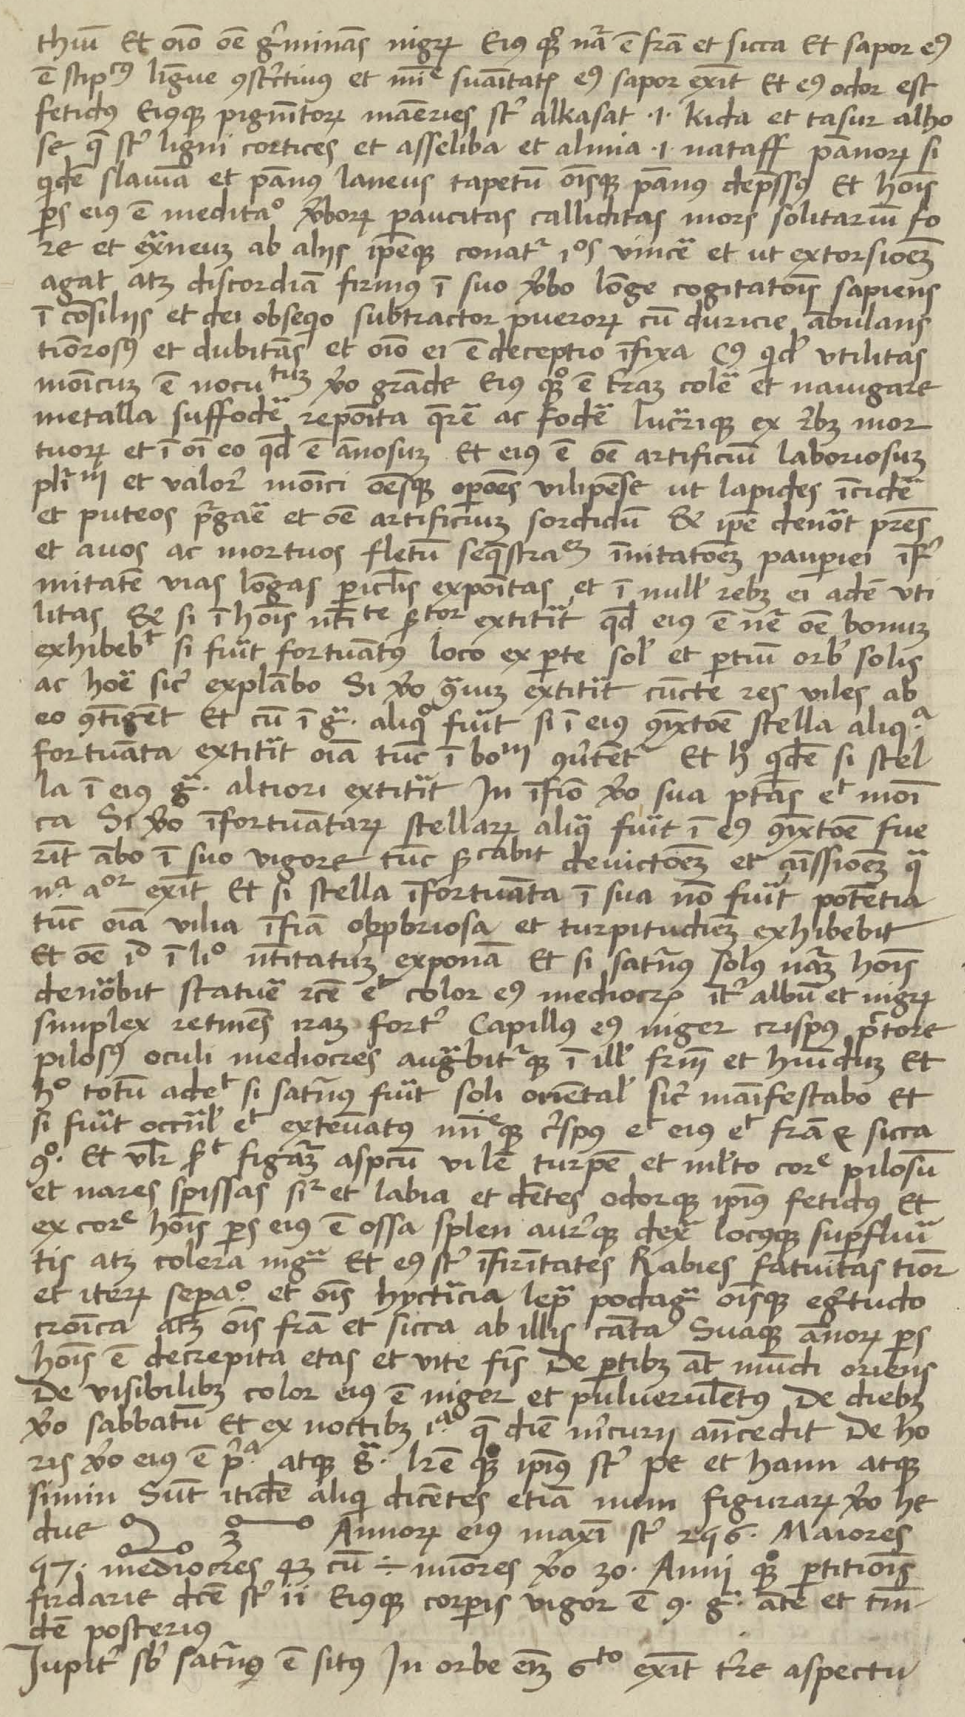 thiu̅ Et oi̅o oe̅ g̾minas nigrꝝ Eiꝰ qꝫ na̅ e̅ fr̅a et sicca Et sapor eꝰ
e̅ stipcꝰ lingue ꝯst̾ctiuus et mi̅e suaitatꝭ eꝰ sapor exi̅t Et eꝰ odor est
fetidꝰ Eiꝰqꝫ pigm̅toꝝ maneries st̾ alkasat .i. kida et tasur alho
se q̅ st̾ ligni cortices et asseliba et almia .i. nataff panoꝝ si
qide̅ slauia̅ et panꝰ laneus tapetu̅ oi̅sqꝫ panꝰ dep̅ssꝰ Et hoi̅s
ps eiꝰ e̅ meditao v̾boꝝ paucitas calliditas mors solitariu̅ fo
re et exa̅neuꝫ ab aliis ip̅eqꝫ conat̾ ios vince̅ et ut extorsioe̅ꝫ
agat atꝫ discordia̅ firmus i̅ suo v̾bo longe cogitatois sapiens
i̅ co̅siliis et dei obseqio subtractor pueroꝝ cu̅ duricie ambulans
timorosꝰ et dubita̅s et oi̅o ei e̅ deceptio i̅fixa Cꝰ qid̾ utilitas
mo̅icuꝫ e̅ nocutuꝫ v̾o grande Eiꝰ qꝫ e̅ t̾raꝫ cole̅ et nauigare
metalla suffode̅ reposita q̅re̅ ac fode̅ lucriqꝫ ex rebꝫ mor
tuoꝝ et i̅ oi̅ eo qd̅ e̅ annosuꝫ Et eiꝰ e̅ oe̅ artificiu̅ laboriosuꝫ
pl̾imi et valor̾ mo̅ici oe̅sqꝫ op̅oes vilipense ut lapides i̅cide̅
et puteos p̾gae̅ et oe̅ artificiuꝫ sordidu̅ Et ip̅e denot̅ p̅res
et auos ac mortuos fletu̅ seq̅straoꝫ imitatoe̅ꝫ pauperiei i̅fir
mitate̅ vias longas periclis expositas et i̅ null̾ rebꝫ ei ade̅ uti
litas Et si i̅ hoi̅s nti̅te p̾tor extit̅it qd̅ eiꝰ e̅ na̅ oe̅ bonuꝫ
exhibebt si fu̅it fortunatꝰ loco ex p̅te sol̾ et p̅tiu̅ orb̾ solis
ac hoe̅ sic̾ explanabo Si v̾o grauiꝫ extit̅it cuncte res viles ab
eo ꝯti̅ge̅t Et cu̅ i̅ ga. aliqa fu̅it si i̅ eiꝰ ꝯixtoe̅ stella aliqa.
fortunata extit̅it oi̅a tu̅c i̅ bom ꝯu̾tent̾ Et ho qide̅ si stel
la i̅ eiꝰ ga. altiori extit̅it In i̅fio v̾o sua p̅tas et moi̅
ca Si v̾o i̅fortunataꝝ stellaꝝ aliqa fu̅it i̅ eꝰ ꝯixtoe̅ fue
ri̅t ambo i̅ suo vigore tu̅c p̾cabit deuictoe̅ꝫ et amissioe̅ꝫ qa
na aor exi̅t Et si stella i̅fortunata i̅ sua no̅ fu̅it potentia
tu̅c oi̅a vilia i̅fia̅ obp̅briosa et turpitudie̅ꝫ exhibebit
Et oe̅ id i̅ lio ntitatuꝫ expona̅ Et si saturnꝰ solꝰ naꝫ hoi̅s
denotabit statue̅ rce̅ et color eꝰ mediocrꝭ it̾ albu̅ et nigrꝝ
simplex retine̅s iraꝫ fort̾ Capillꝰ eꝰ niger crispꝰ p̾tore
pilosꝰ oculi mediocres augabit̾qꝫ i̅ ill̾ fr̅m et humiduꝫ Et
ho totu̅ adet si saturnꝰ fu̅it soli oriental̾ sic̾ manifestabo Et
si fu̅it occidl̾ et extenuatꝰ mi̅eqꝫ crispꝰ et eiꝰ et fr̅a & sicca
ꝯo. Et vlr̾ st figuraꝫ aspcu̅ vile̅ turpe̅ et ml̾to core pilosu̅
et nares spissas sir et labia et dentes odorqꝫ ipiꝰ fetidꝰ Et
ex core hoi̅s ps eiꝰ e̅ ossa splen aurisqꝫ dexa̅ locꝰqꝫ sup̅flui
tis atꝫ colera niga Et eꝰ st̾ i̅firmitates Rabies fatuitas timor
et iteꝝ sepao et oi̅s hyctericia lepa podaga oi̅sqꝫ egritudo
cronica atꝫ oi̅s fr̅a et sicca ab illis ca̅ta Suaqꝫ annoꝝ ps
hoi̅s e̅ decrepita etas et vite fi̅s De p̅tibꝫ at̅ mu̅di oriens
De visibilibꝫ color eiꝰ e̅ niger et puluerulentꝰ De diebꝫ
v̾o sabbatu̅ Et ex noctibꝫ ia q̅ die̅ m̾curii ancedit De ho
ris v̾o eiꝰ e̅ pa. atqꝫ 8a. Lr̅e qꝫ ipiꝰ st̾ pe et hann atqꝫ
simin Su̅t itide̅ aliqi dice̅tes etia̅ num figuraꝝ v̾o he
due Annoꝝ eiꝰ maxi̅ st̾ 256. Maiores
57. mediocres 43 cu̅ ÷ minores v̾o 30. Anni qꝫ p̅titiois
firdarie dce̅ st̾ ii Eiꝰqꝫ corpis vigor e̅ 9. g. ante et ti̅
de̅ posterius
Iupit̾ sb̾ saturnꝰ e̅ sitꝰ In orbe eni̅ 6to exi̅t t̾re aspectu